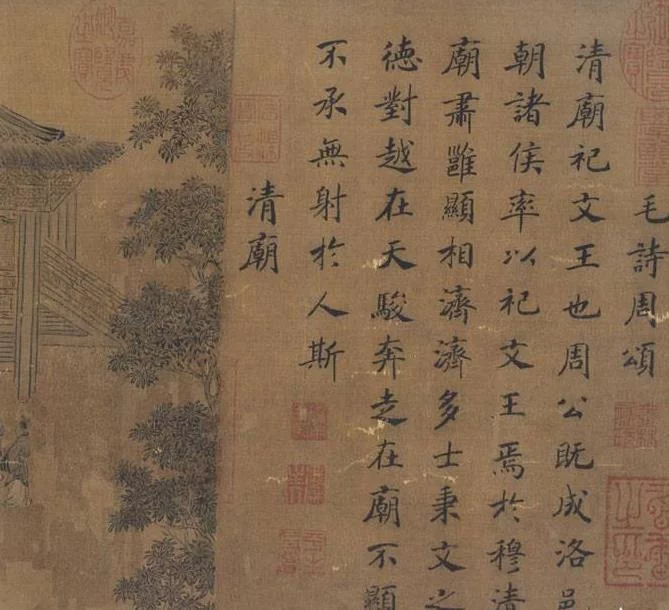 毛詩周頌
清廟祀文王也周公既成洛邑
朝諸侯率以祀文王焉於穆清
廟肅雝顯相濟濟多士秉文之
德對越在天駿奔走在廟不顯
不承無射於人斯
清廟